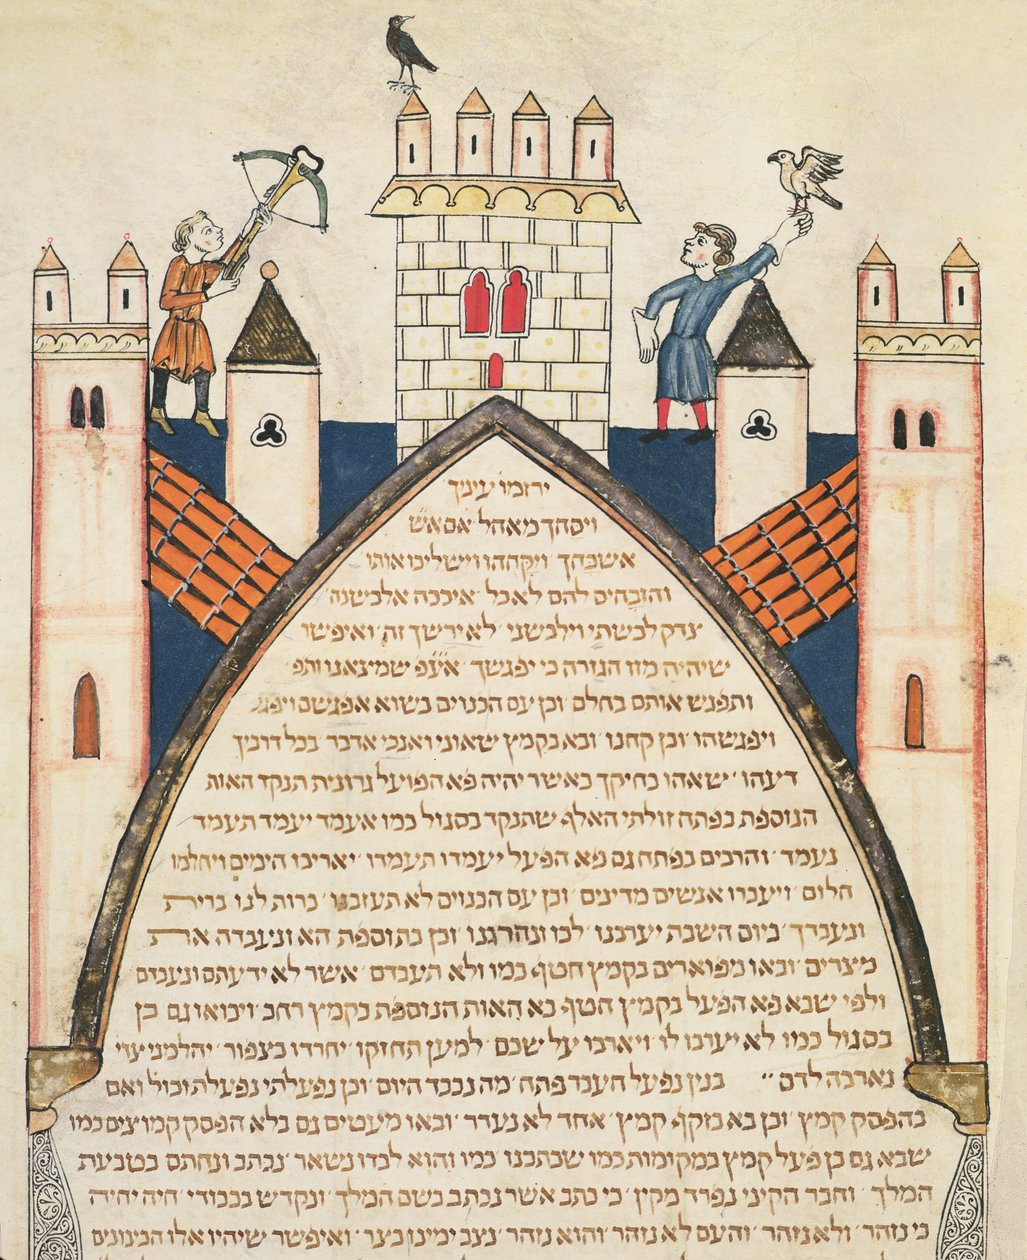 ירזמו עיניך
ויסחך מאהל אם אש
אשבהך ויקחהו וישליכו אותו
והזבחים להם לאכל איככה אלבשנה
צדק לבשתי וילבשני לא ירשך זה ואיפשר
שיהיה מזו הגזרה כי יפגשך אעפ שמצאנו ותפ
ותפגש אותם בחלם וכן עם הכנוים בשוא אפגשם ויפג
ויפגשהו וכן קחנו ובא בקמץ שאוני ואנכי אדבר בכל דרכיך
דעהו ישאהו בחיקך כאשר יהיה פא הפועל גרונית תנקד האות
הנוספת בפתח זולתי האלף שתנקד בסגול כמו אעמד יעמד תעמד
נעמד והרבים בפתח גם פא הפעל יעמדו תעמדו יאריכו הימים ויחלמו
חלום ויעברו אנשים מדינים וכן עם הכנוים לא תעזבנו כרות לנו ברית
ונעבדך ביום השבת יערכנו לכו ונהרגנו וכן בתוספת הא ונעבדה את
מצרים ובאו מפוארים בקמץ חטף כמו ולא תעבדם אשר לא ידעתם ונעבדם
ולפי שבא פא הפעל בקמץ חטף בא האות הנוספת בקמץ רחב ויבואו גם כן
בסגול כמו לא יערכנו לו ויארבו על שכם למען תחזקו יחרדו כצפור יהלמני צדי
נארבה לדם בנין נפעל פתח מה נכבד היום וכן נפעלתי נפעלת וכול ואם
בהפסק קמץ וכן בא בזקף קמץ אחד לא נעדר ובאו מעטים גם בלא הפסק קמוצים כמו
שבא גם כן פעל קמץ במקומות כמו שכתבנו כמו והוא לבדו נשאר נכתב ונחתם בטבעת
המלך וחבר הקיני נפרד מקין כי כתב אשר נכתב בשם המלך ונקדש בכבודי היה יהיה
כי נזהר ולא נזהר והעם לא נזהר והוא נזהר נצב ימינו כצר ואיפשר שיהיו אלו הבינונים